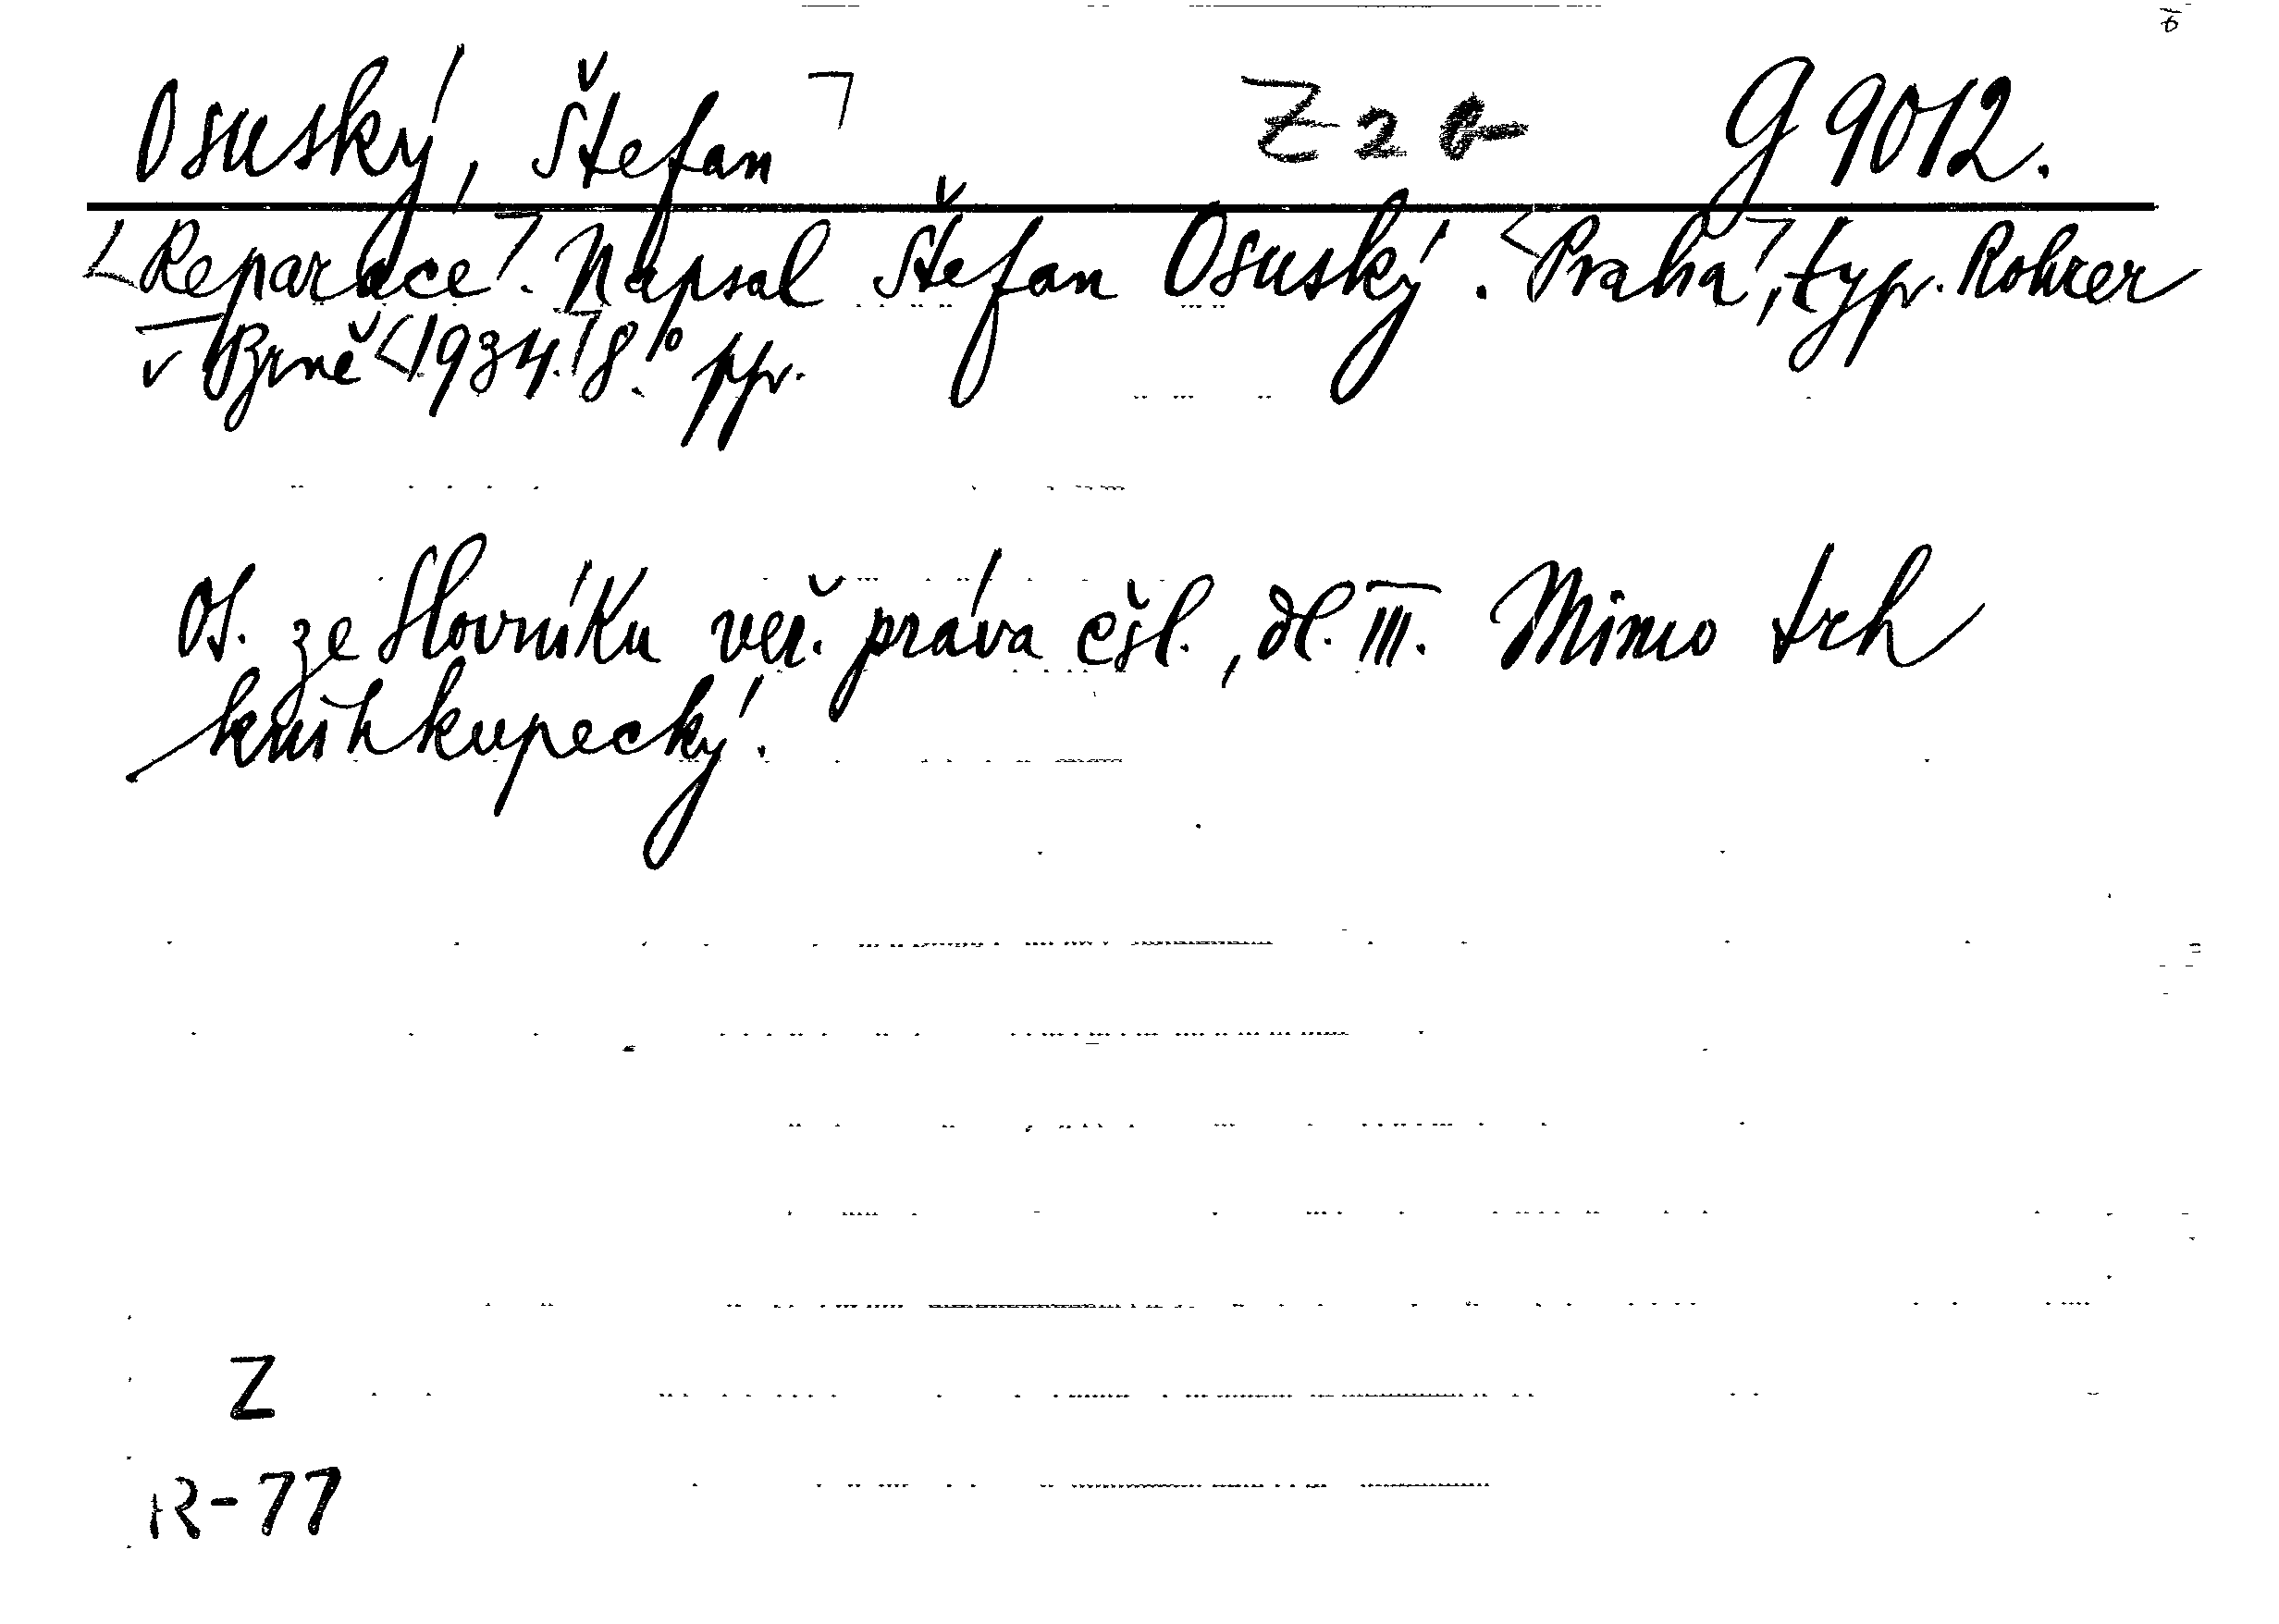 Osuský, Štefan ㄱ G 9012.
<Reparaceㄱ. Napsal Štefan Osuský. <Prahaㄱ, typ. Rohrer
v Brně <1934.ㄱ 8.° ppr.
OS. ze Slovníku veř. práva čsl., dl. III. Mimo trh
knihkupecký.
Z
R-77